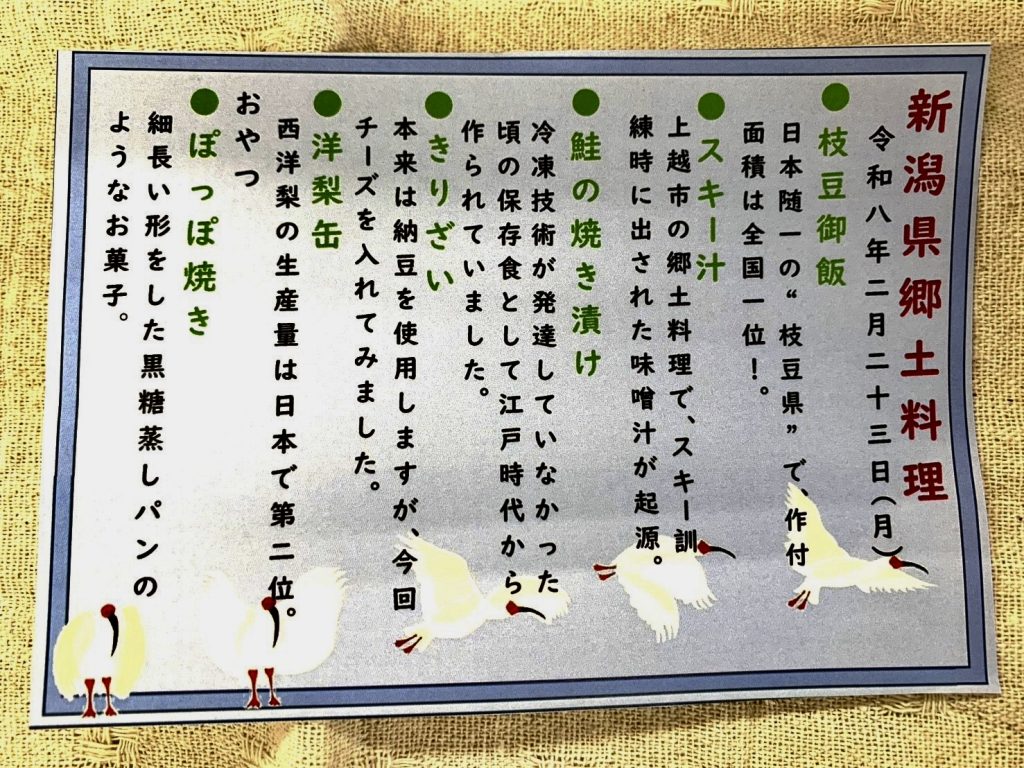 新潟県郷土料理
令和八年二月二十三日（月）
●枝豆御飯
日本随一の“枝豆県”で、作付
面積は全国一位！。
●スキー汁
上越市の郷土料理で、スキー訓
練時に出された味噌汁が起源。
●鮭の焼き漬け
冷凍技術が発達していなかった
頃の保存食として江戸時代から
作られていました。
●きりざい
本来は納豆を使用しますが、今回
チーズを入れてみました。
●洋梨缶
西洋梨の生産量は日本で第二位。
おやつ
●ぽっぽ焼き
細長い形をした黒糖蒸しパンの
ようなお菓子。